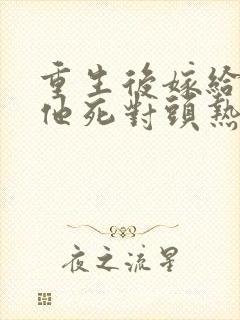 重生後嫁給
他死對頭熱
夜之流星